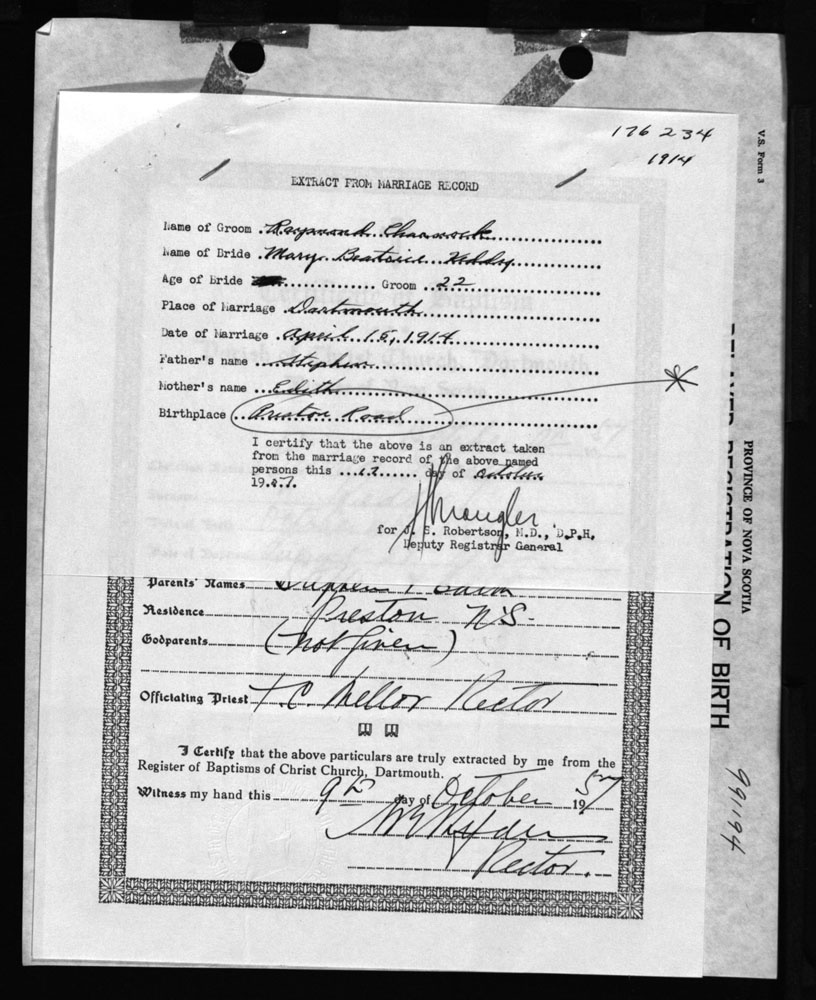 176 234
1914
EXTRACT FROM MARRIAGE RECORD
Name of Groom Raymond Charnock
Name of Bride Mary Beatrice
Age of Bride Groom 22
Place of Marriage Dartmouth
Date of Marriage April 15, 1914
Father's name Stephen
Mother's name Edith
Birthplace Preston Road
I certify that the above is an extract taken
from the marriage record of the above named
persons this day of October
1957.
for J. S. Robertson, M.D., D.P.H,
Deputy Registrar General
Parents' Names
Residence Preston N.S.
Godparents (not given)
Officiating Priest T.C. Mellor Rector
I Certify that the above particulars are truly extracted by me from the
Register of Baptisms of Christ Church, Dartmouth.
Witness my hand this 9th day of October 1957
Rector.
V.S. Form 3
PROVINCE OF NOVA SCOTIA
REGISTRATION OF BIRTH
991194